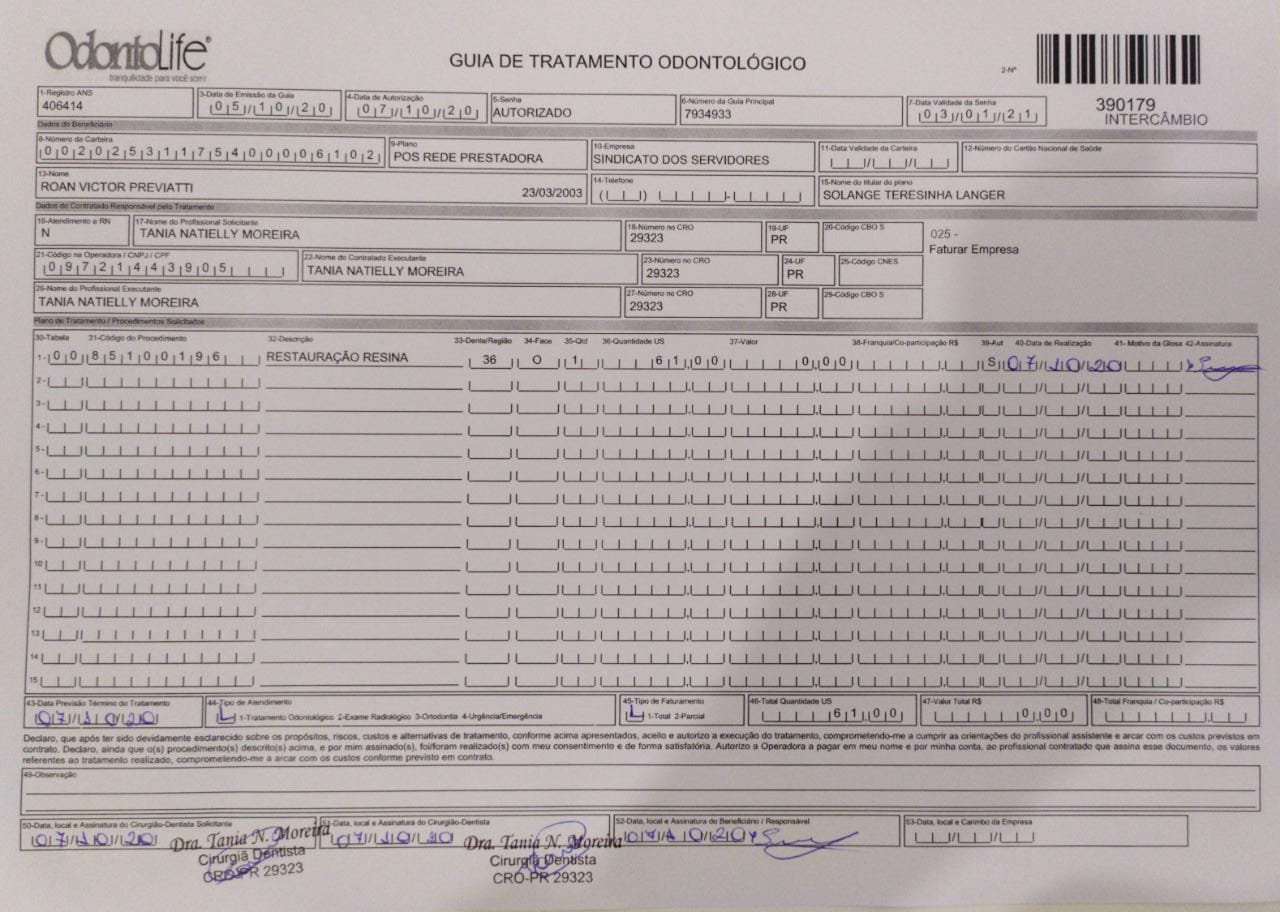 OdontoLife®
tranquilidade para você sorrir
GUIA DE TRATAMENTO ODONTOLÓGICO
2-Nº
390179
INTERCÂMBIO
1-Registro ANS
406414
3-Data de Emissão da Guia
05/10/20
4-Data de Autorização
07/10/20
5-Senha
AUTORIZADO
6-Número da Guia Principal
7934933
7-Data Validade da Senha
03/01/21
Dados do Beneficiário
8-Número da Carteira
00202531175400006102
9-Plano
POS REDE PRESTADORA
10-Empresa
SINDICATO DOS SERVIDORES
11-Data Validade da Carteira
12-Número do Cartão Nacional de Saúde
13-Nome
ROAN VICTOR PREVIATTI 23/03/2003
14-Telefone
15-Nome do titular do plano
SOLANGE TERESINHA LANGER
Dados do Contratado Responsável pelo Tratamento
16-Atendimento a RN
N
17-Nome do Profissional Solicitante
TANIA NATIELLY MOREIRA
18-Número no CRO
29323
19-UF
PR
20-Código CBO S
025 -
Faturar Empresa
21-Código na Operadora / CNPJ / CPF
09721443905
22-Nome do Contratado Executante
TANIA NATIELLY MOREIRA
23-Número no CRO
29323
24-UF
PR
25-Código CNES
26-Nome do Profissional Executante
TANIA NATIELLY MOREIRA
27-Número no CRO
29323
28-UF
PR
29-Código CBO S
Plano de Tratamento / Procedimentos Solicitados
30-Tabela 31-Código do Procedimento 32-Descrição 33-Dente/Região 34-Face 35-Qtd 36-Quantidade US 37-Valor 38-Franquia/Co-participação R$ 39-Aut 40-Data de Realização 41- Motivo da Glosa 42-Assinatura
1- 00 85100196 RESTAURAÇÃO RESINA 36 O 1 61,00 0,00 S 07/10/20
2-
3-
4-
5-
6-
7-
8-
9-
10
11
12
13
14
15
43-Data Previsão Término do Tratamento
07/10/20
44-Tipo de Atendimento
1 1-Tratamento Odontológico 2-Exame Radiológico 3-Ortodontia 4-Urgência/Emergência
45-Tipo de Faturamento
1 1-Total 2-Parcial
46-Total Quantidade US
61,00
47-Valor Total R$
0,00
48-Total Franquia / Co-participação R$
Declaro, que após ter sido devidamente esclarecido sobre os propósitos, riscos, custos e alternativas de tratamento, conforme acima apresentados, aceito e autorizo a execução do tratamento, comprometendo-me a cumprir as orientações do profissional assistente e arcar com os custos previstos em
contrato. Declaro, ainda que o(s) procedimento(s) descrito(s) acima, e por mim assinado(s), foi/foram realizado(s) com meu consentimento e de forma satisfatória. Autorizo a Operadora a pagar em meu nome e por minha conta, ao profissional contratado que assina esse documento, os valores
referentes ao tratamento realizado, comprometendo-me a arcar com os custos conforme previsto em contrato.
49-Observação
50-Data, local e Assinatura do Cirurgião-Dentista Solicitante
07/10/20
Dra. Tania N. Moreira
Cirurgiã Dentista
CRO-PR 29323
51-Data, local e Assinatura do Cirurgião-Dentista
07/10/20
Dra. Tania N. Moreira
Cirurgiã Dentista
CRO-PR 29323
52-Data, local e Assinatura do Beneficiário / Responsável
07/10/20
53-Data, local e Carimbo da Empresa